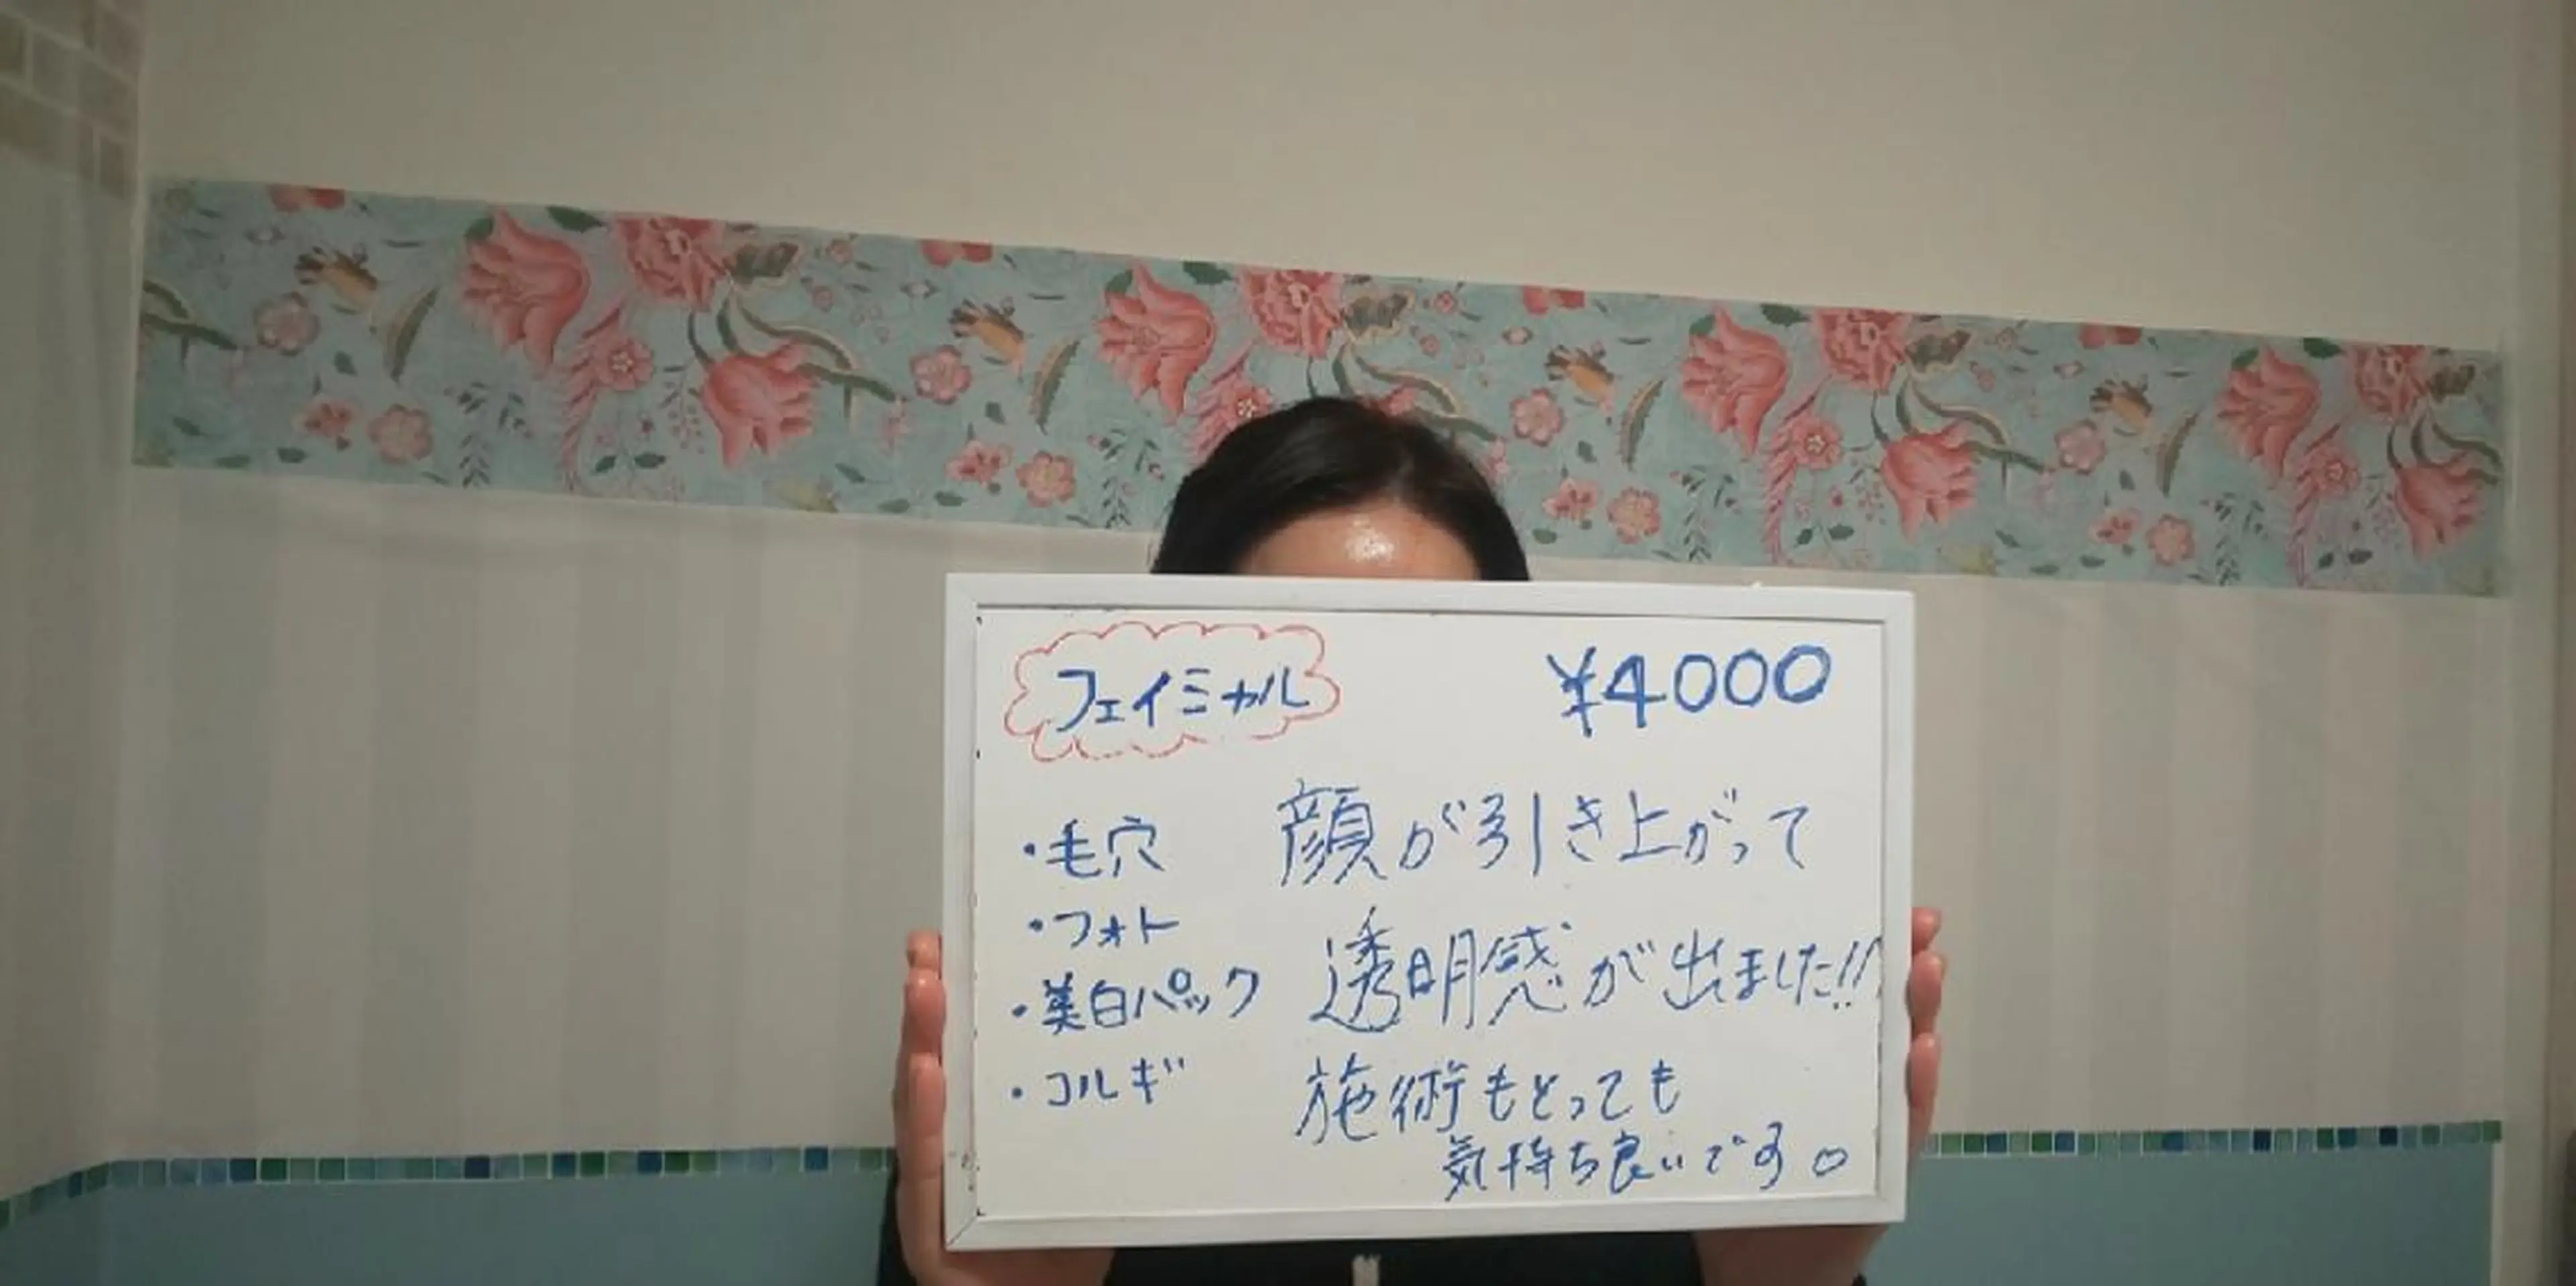 フェイミャル
¥4000
・毛穴
・フォト
・美白パック
・コルギ
顔が引き上がって
透明感が出ました!!
施術もとっても
気持ち良いです。